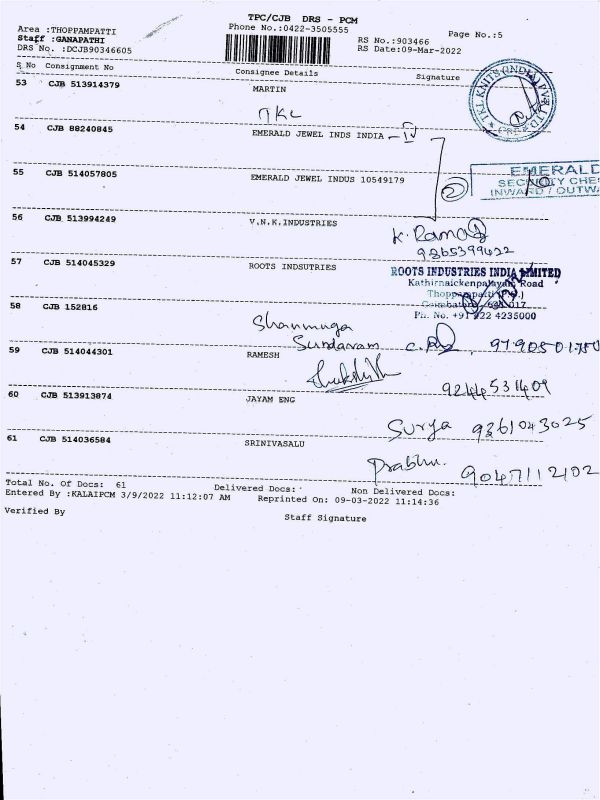 TPC/CJB DRS - PCM
Area :THOPPAMPATTI
Phone No.:0422-3505555
Page No.:5
Staff :GANAPATHI
RS No.:903466
DRS No. :DCJB90346605
RS Date:09-Mar-2022
S No Consignment No Consignee Details Signature
53 CJB 513914379 MARTIN
TKL
TKL KNITS (INDIA) PVT LTD
CBE
54 CJB 88240845 EMERALD JEWEL INDS INDIA
55 CJB 514057805 EMERALD JEWEL INDUS 10549179
2
EMERALD
SECURITY CHE
INWARD / OUTWA
56 CJB 513994249 V.N.K.INDUSTRIES
K. Rama
9265399422
57 CJB 514045329 ROOTS INDSUTRIES
ROOTS INDUSTRIES INDIA LIMITED
Kathirnaickenpalayam Road
Thoppampatti (P.O.)
Coimbatore - 641 017
Ph. No. +91 422 4235000
58 CJB 152816
Shanmuga
Sundaram
59 CJB 514044301 RAMESH
9244531409
60 CJB 513913874 JAYAM ENG
Surya 9361043025
61 CJB 514036584 SRINIVASALU
Prabhu. 9047112102
Total No. Of Docs: 61 Delivered Docs: Non Delivered Docs:
Entered By :KALAIPCM 3/9/2022 11:12:07 AM Reprinted On: 09-03-2022 11:14:36
Verified By
Staff Signature